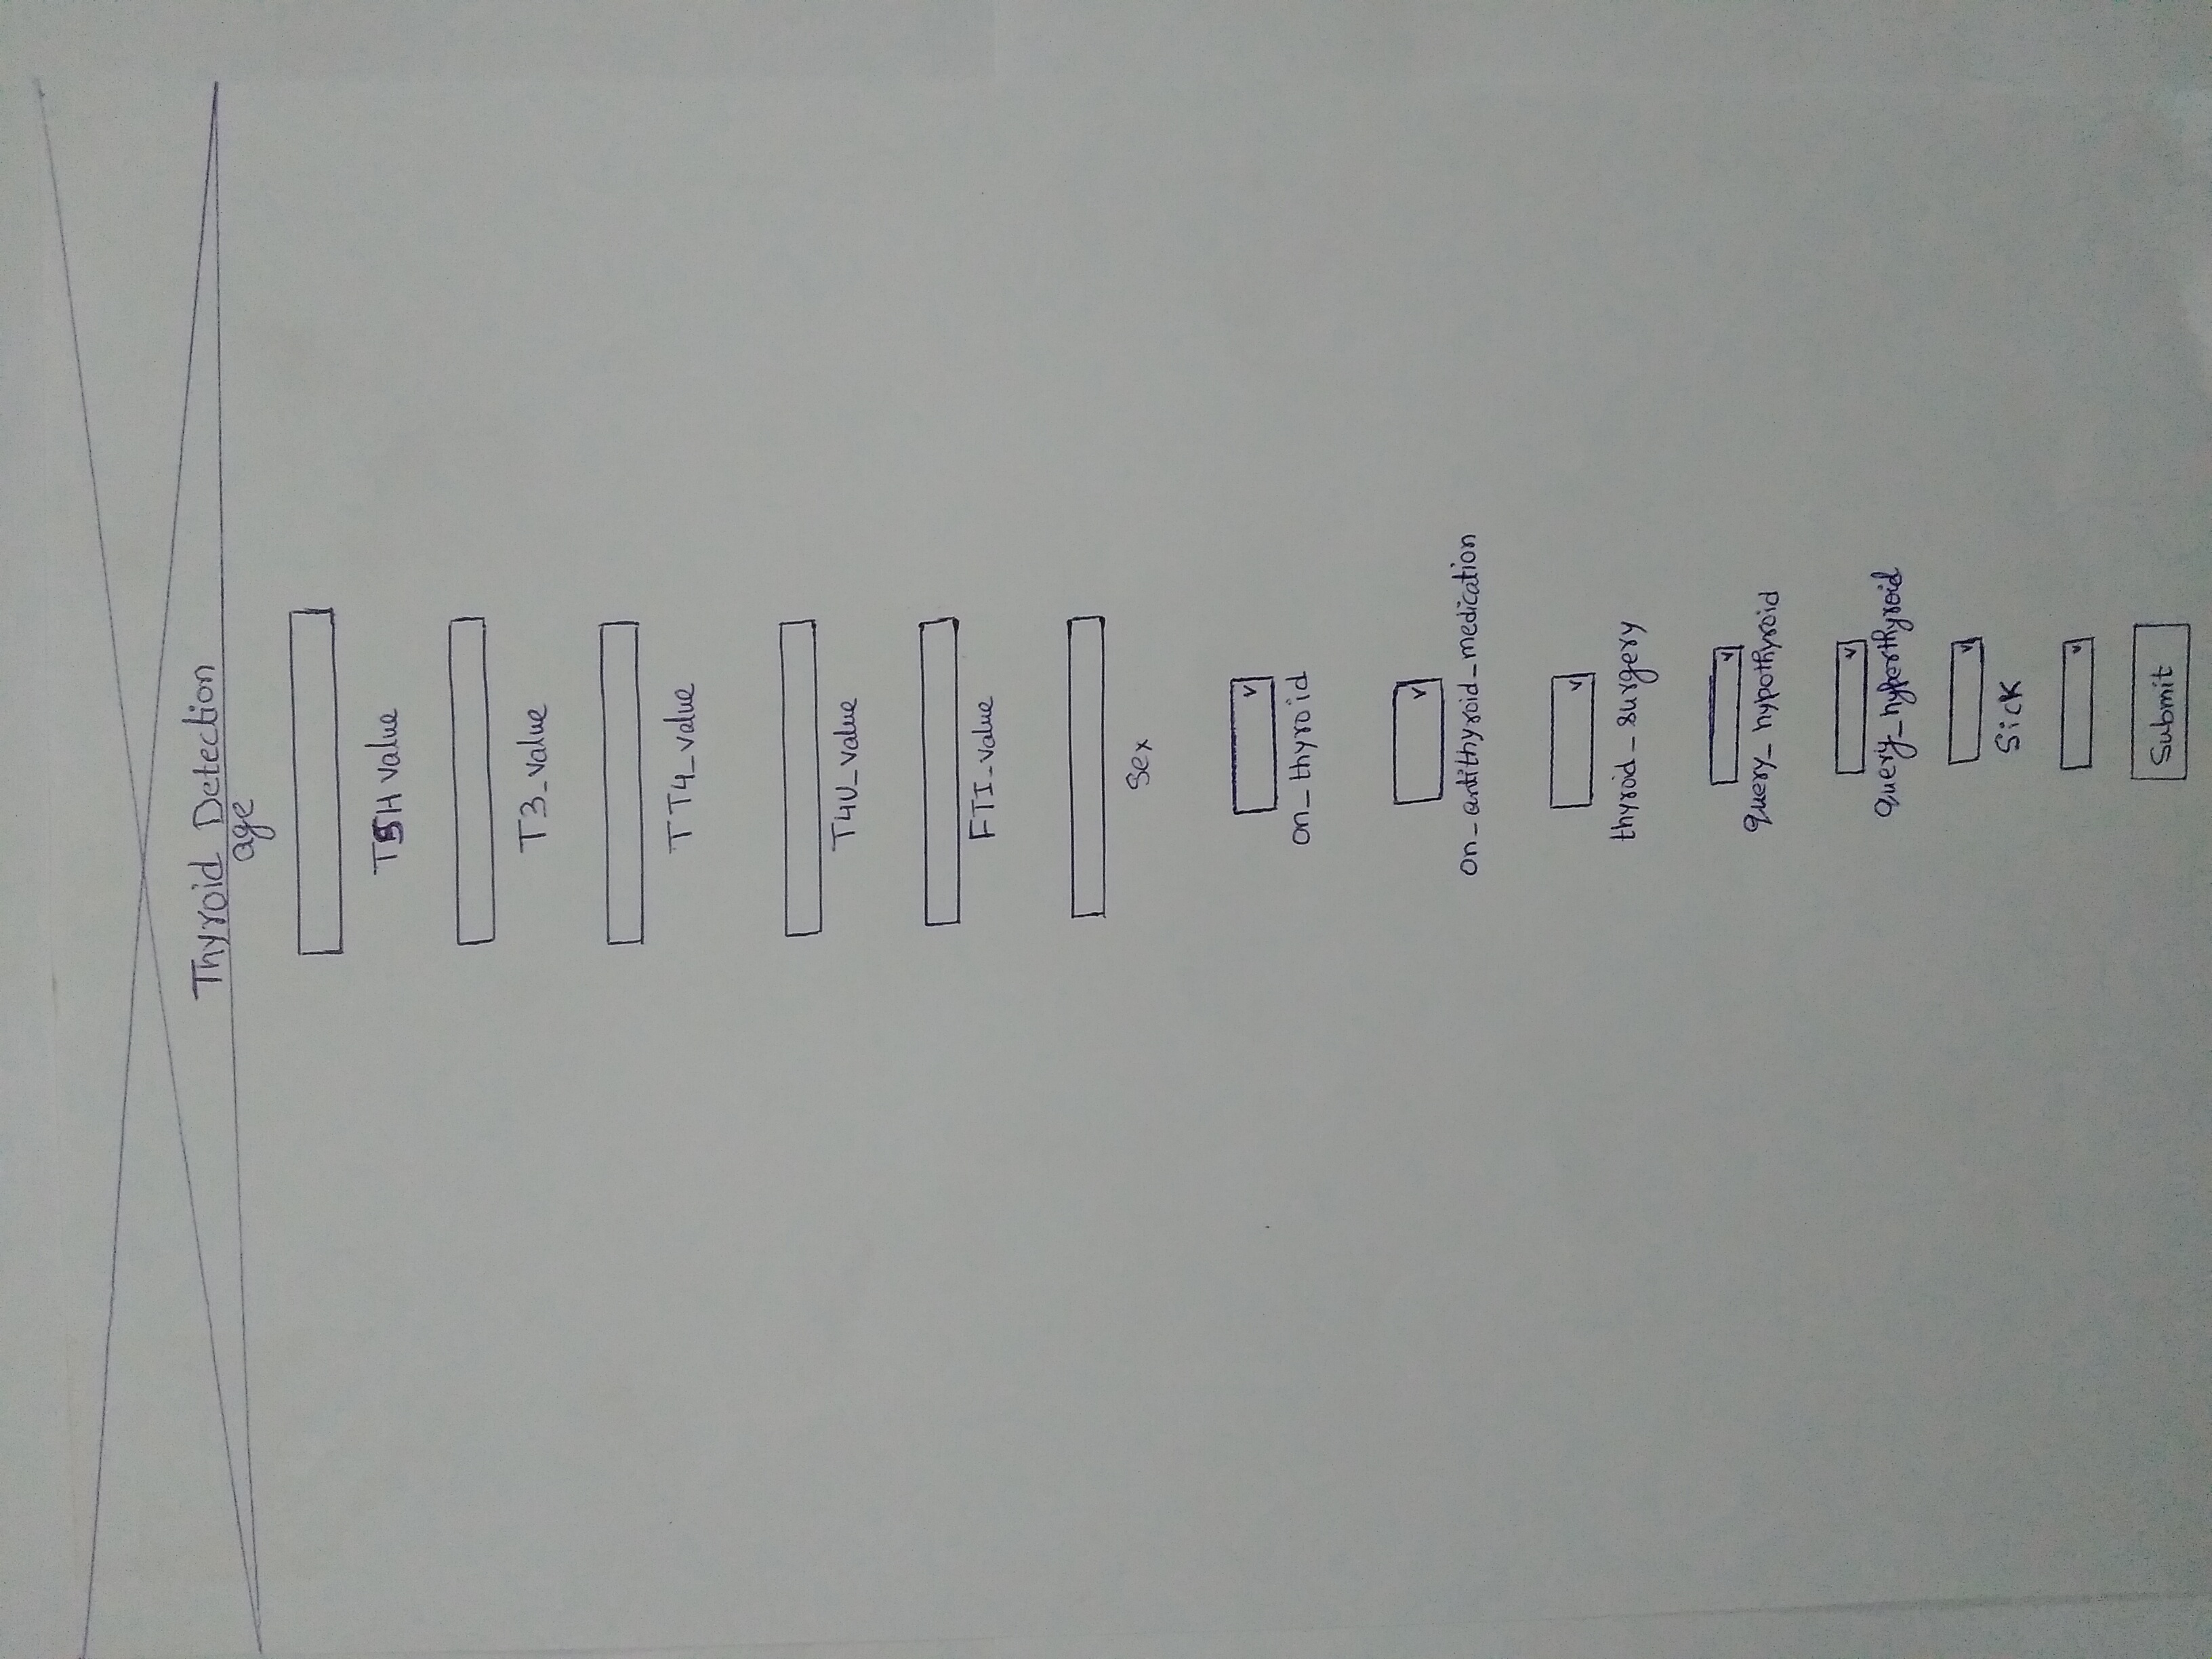 Thyroid Detection
age
TSH value
T3_value
TT4_value
T4U_value
FTI_value
Sex
on_thyroid
on_antithyroid_medication
thyroid_surgery
query_hypothyroid
query_hyperthyroid
Sick
Submit